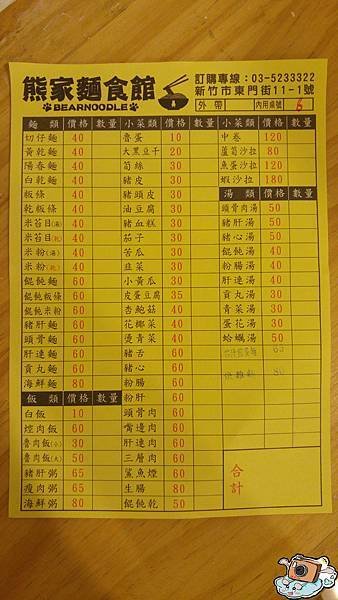 熊家麵食館
BEARNOODLE
訂購專線：03-5233322
新竹市東門街11-1號
外帶 內用桌號 6
麵類 價格 數量 小菜類 價格 數量 小菜類 價格 數量
切仔麵 40 魯蛋 10 中卷 120
黃乾麵 40 大黑豆干 20 蘆筍沙拉 80
陽春麵 40 筍絲 30 魚蛋沙拉 120
白乾麵 40 豬皮 30 蝦沙拉 180
粄條 40 豬頭皮 30 湯類 價格 數量
乾粄條 40 油豆腐 30 頭骨肉湯 50
米苔目(湯) 40 豬血糕 30 豬肝湯 50
米苔目(乾) 40 茄子 30 豬心湯 50
米粉(湯) 40 苦瓜 30 餛飩湯 40
米粉(乾) 40 韭菜 30 粉腸湯 40
餛飩麵 60 小黃瓜 30 肝連湯 40
餛飩粄條 60 皮蛋豆腐 35 貢丸湯 30
餛飩米粉 60 杏鮑菇 40 青菜湯 30
豬肝麵 60 花椰菜 40 蛋花湯 30
頭骨麵 60 燙青菜 40 蛤蠣湯 50
肝連麵 60 豬舌 60 65
貢丸麵 60 豬心 60
海鮮麵 80 粉腸 60 80
飯類 價格 數量 粉肝 60
白飯 10 頭骨肉 60
焢肉飯 60 嘴邊肉 60
魯肉飯(小) 30 肝連肉 60
魯肉飯(大) 50 三層肉 60
豬肝粥 65 鯊魚煙 60
瘦肉粥 65 生腸 80
海鮮粥 80 餛飩乾 50
合計